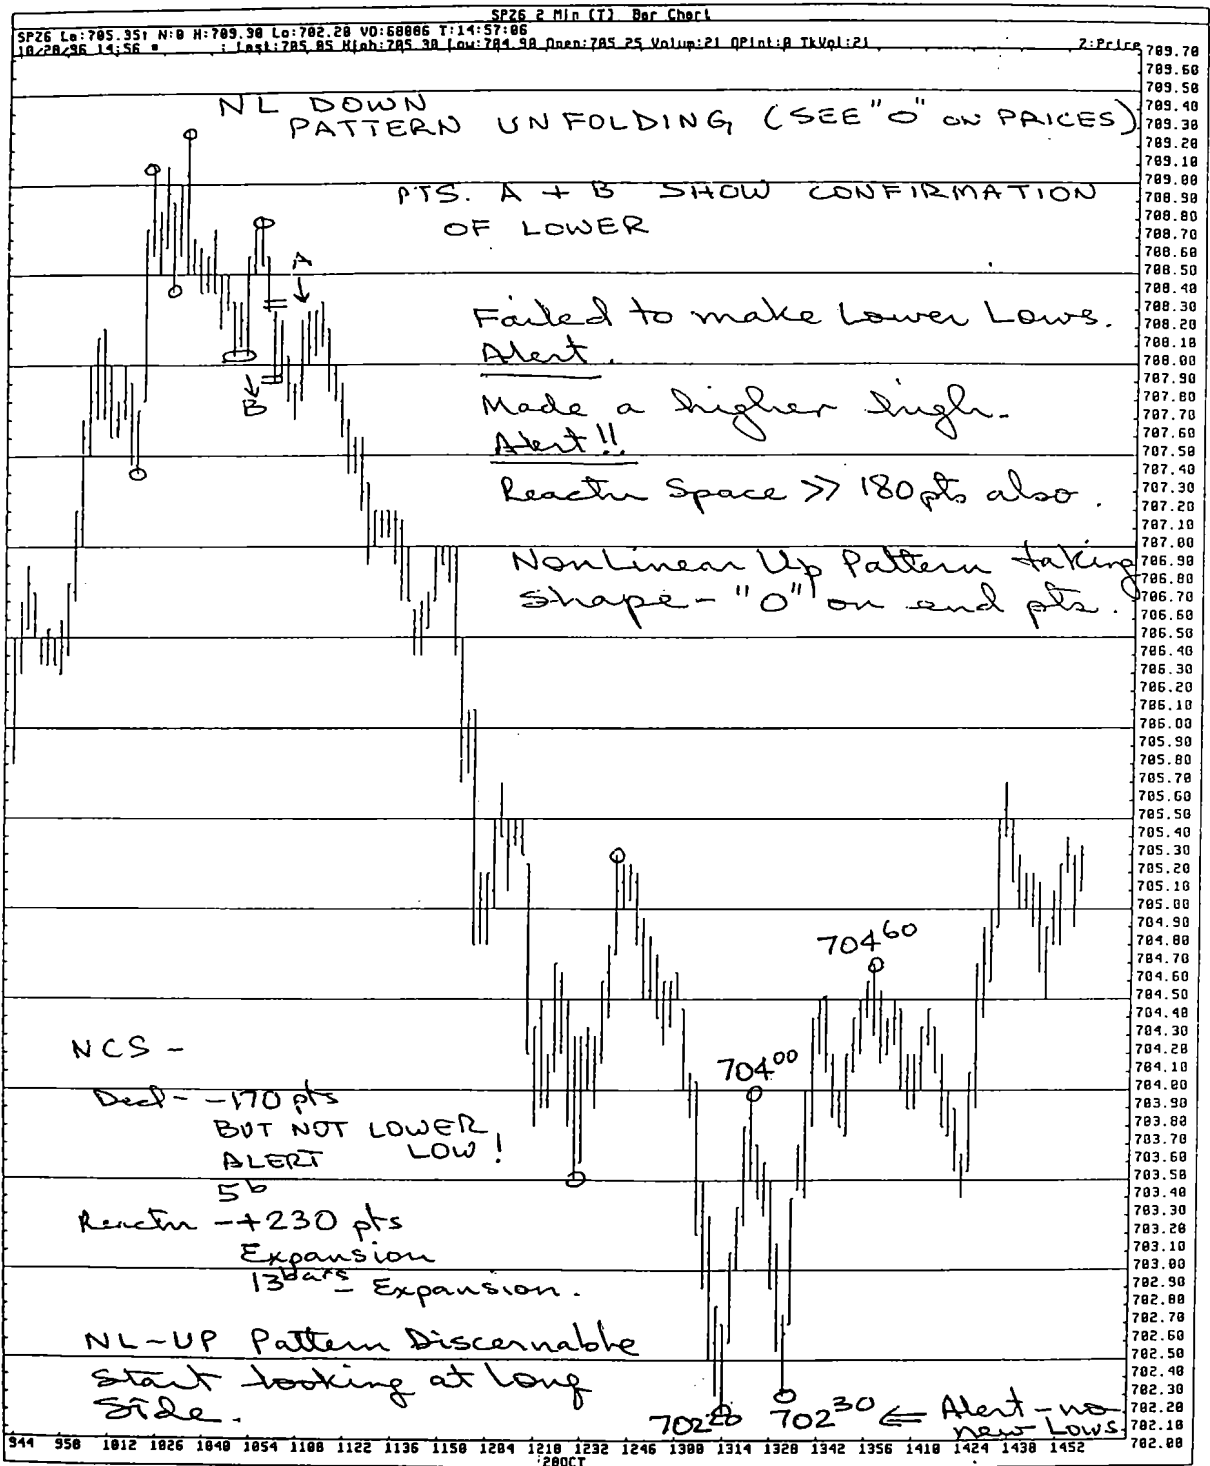 SPZ6 2 Min (T) Bar Chart
SPZ6 La:705.35↑ N:0 H:709.30 Lo:702.20 VO:68086 T:14:57:06
10/28/96 14:56 = : Last:705.05 High:705.30 Low:704.90 Open:705.25 Volum:21 OPInt:0 TkVol:21 Z:Price
NL DOWN
PATTERN UNFOLDING (SEE "O" ON PRICES)
PTS. A + B SHOW CONFIRMATION
OF LOWER
A
B
Failed to make Lower Lows.
Alert.
Made a higher high-
Alert!!
Reactn Space >> 180 pts also.
NonLinear Up Pattern taking
shape - "O" on end pts.
704⁶⁰
704⁰⁰
NCS -
Decl- -170 pts
BUT NOT LOWER
ALERT LOW!
5ᵇ
Reactn - +230 pts
Expansion
13ᵇᵃʳˢ - Expansion.
NL-UP Pattern Discernable
Start looking at long
Side.
702²⁰ 702³⁰ ⇐ Alert - no
new Lows.
709.70
709.60
709.50
709.40
709.30
709.20
709.10
709.00
708.90
708.80
708.70
708.60
708.50
708.40
708.30
708.20
708.10
708.00
707.90
707.80
707.70
707.60
707.50
707.40
707.30
707.20
707.10
707.00
706.90
706.80
706.70
706.60
706.50
706.40
706.30
706.20
706.10
706.00
705.90
705.80
705.70
705.60
705.50
705.40
705.30
705.20
705.10
705.00
704.90
704.80
704.70
704.60
704.50
704.40
704.30
704.20
704.10
704.00
703.90
703.80
703.70
703.60
703.50
703.40
703.30
703.20
703.10
703.00
702.90
702.80
702.70
702.60
702.50
702.40
702.30
702.20
702.10
702.00
944 958 1012 1026 1040 1054 1108 1122 1136 1150 1204 1218 1232 1246 1300 1314 1328 1342 1356 1410 1424 1438 1452
28OCT